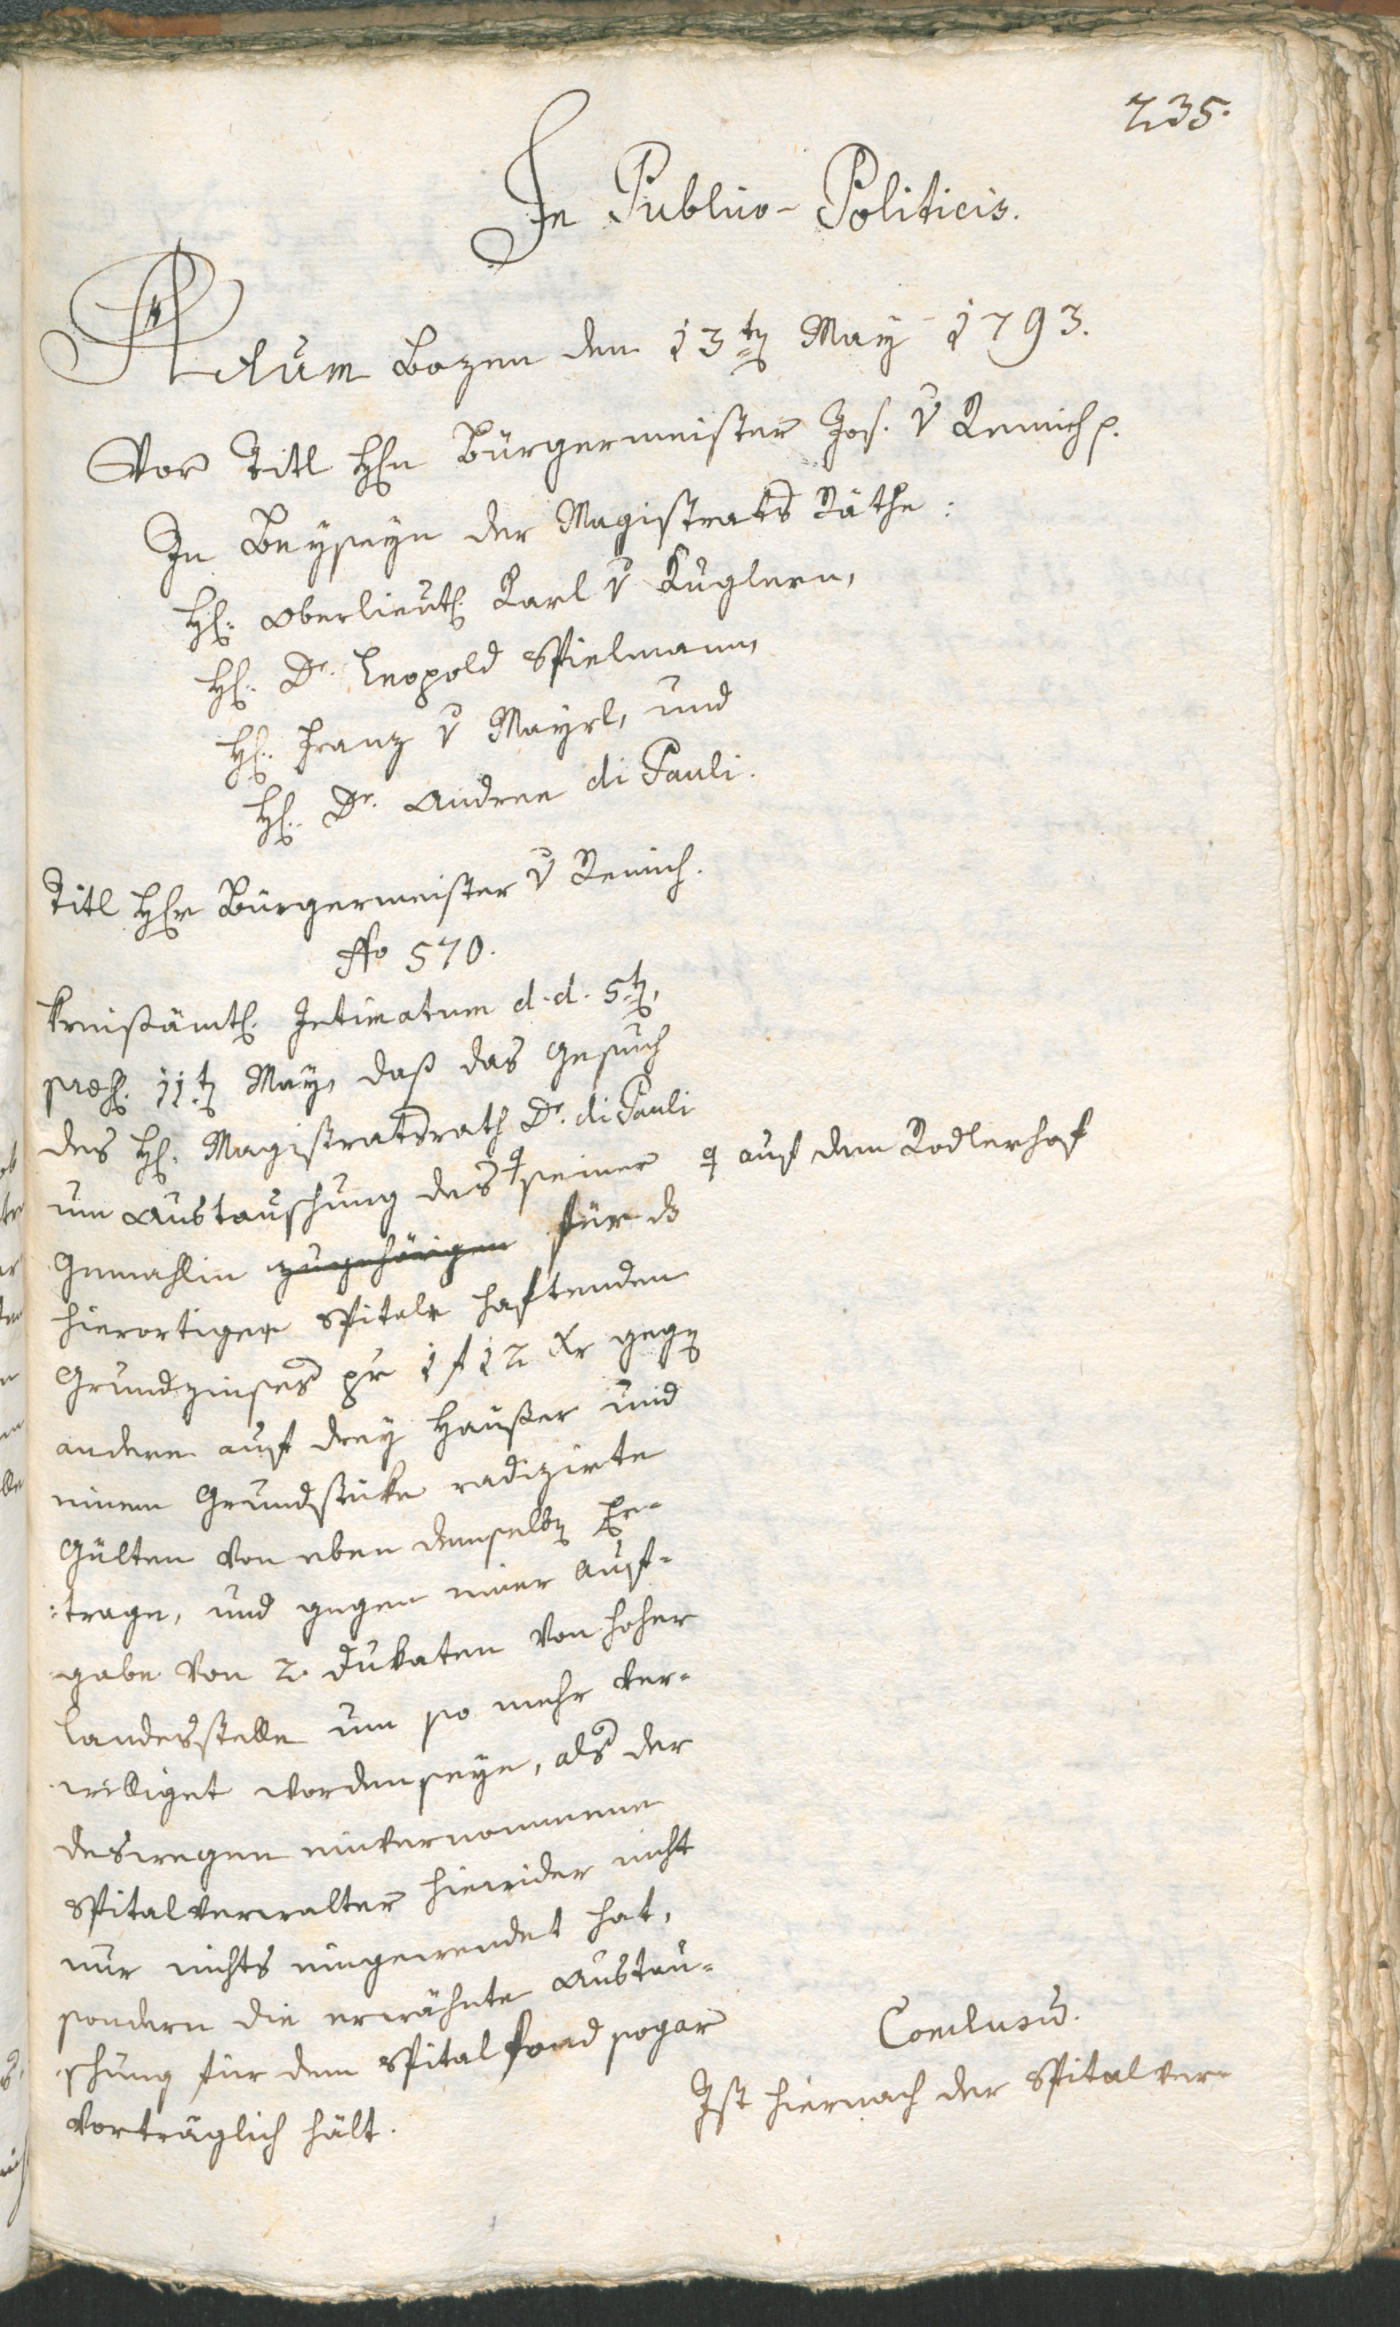 235.
In Publico-Politicis.
Actum Bozen den 13ten May 1793.
Vor Titl Hn Bürgermeister Jos. v Remich p.
In Beyseyn der Magistrats Räthe:
H. Oberlieut. Karl v Kuglern,
H. Dr. Leopold Spielmann,
H. Franz v Mayrl, und
H. Dr. Andree di Pauli.
Titl Hr Bürgermeister v Remich.
No 570.
Kreißämtl. Intimatum d. d. 5ten,
praes. 11ten May, daß das Gesuch
des H. Magistratsrath Dr. di Pauli
um Austauschung des seiner auf dem Rodlerhof
Gemahlin zugehörigen für d
hierortigen Spitale haftenden
Grundzinses pr 1 f 12 Xr gegen
andere auf drey Häußer und
einem Grundstücke radizirte
Gülten von eben demselben Er-
:trage, und gegen einer Auf-
gabe von 2. Dukaten von hoher
Landesstelle um so mehr ver-
williget worden seye, als der
deswegen einvernommene
Spitalverwalter hierwider nicht
nur nichts eingewendet hat,
sondern die erwähnte Austau-
schung für dem Spitalfond sogar
vorträglich hält.
Conclusum.
Ist hiernach der Spitalver-